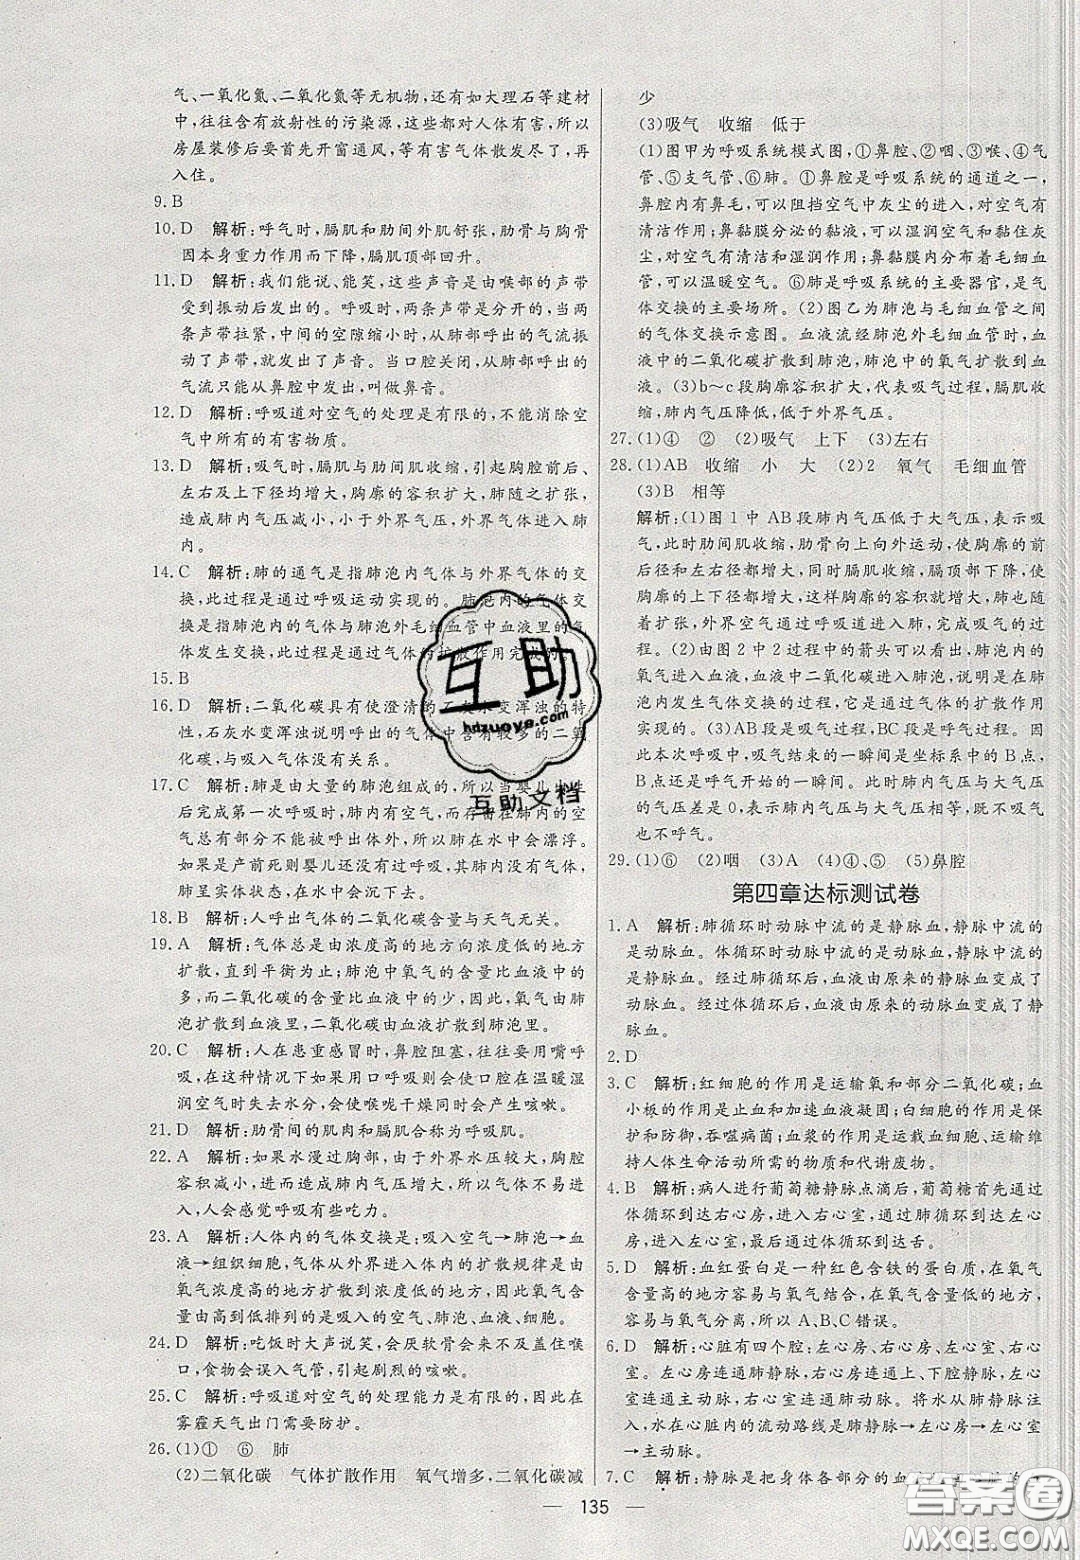 气、一氧化氮、二氧化氮等无机物,还有如大理石等建材
中,往往含有放射性的污染源,这些都对人体有害,所以
房屋装修后要首先开窗通风,等有害气体散发尽了,再
入住。
9. B
10. D 解析:呼气时,膈肌和肋间外肌舒张,肋骨与胸骨
因本身重力作用而下降,膈肌顶部回升。
11. D 解析:我们能说、能笑,这些声音是由喉部的声带
受到振动后发出的。呼吸时,两条声带是分开的。当两
条声带拉紧,中间的空隙缩小时,从肺部呼出的气流振
动了声带,就发出了声音。当口腔关闭,从肺部呼出的
气流只能从鼻腔中发出,叫做鼻音。
12. D 解析:呼吸道对空气的处理是有限的,不能消除空
气中所有的有害物质。
13. D 解析:吸气时,膈肌与肋间外肌收缩,引起胸腔前后、
左右及上下径均增大,胸廓的容积扩大,肺随之扩张,
造成肺内气压减小,小于外界气压,外界气体进入肺
内。
14. C 解析:肺的通气是指肺泡内气体与外界气体的交
换,此过程是通过呼吸运动实现的。肺泡内的气体交
换是指肺泡内的气体与肺泡外毛细血管中血液里的气
体发生交换,此过程是通过气体的扩散作用完成的。
15. B
16. D 解析:二氧化碳具有使澄清的石灰水变浑浊的特
性,石灰水变浑浊说明呼出的气体中含有较多的二氧
化碳,与吸入气体没有关系。
17. C 解析:肺是由大量的肺泡组成的,所以当婴儿出生
后完成第一次呼吸时,肺内有空气,而存留在肺内的空
气总有部分不能被呼出体外,所以肺在水中会漂浮。
如果是产前死则婴儿还没有过呼吸,肺内没有气体,
肺呈实体状态,在水中会沉下去。
18. B 解析:人呼出气体的二氧化碳含量与天气无关。
19. A 解析:气体总是由浓度高的地方向浓度低的地方
扩散,直到平衡为止;肺泡中氧气的含量比血液中的
多,而二氧化碳的含量比血液中的少,因此,氧气由肺
泡扩散到血液里,二氧化碳由血液扩散到肺泡里。
20. C 解析:人在患重感冒时,鼻腔阻塞,往往要用嘴呼
吸,在这种情况下如果用口呼吸则会使口腔在温暖湿
润空气时失去水分,使喉咙干燥同时会产生咳嗽。
21. D 解析:肋骨间的肌肉和膈肌合称为呼吸肌。
22. A 解析:如果水漫过胸部,由于外界水压较大,胸腔
容积缩小,使肺内气压增大,所以气体不易进
入,人会感觉呼吸有些吃力。
23. A 解析:人体内的气体交换是:吸入空气→肺泡→血
液→组织细胞,气体从外界进入体内的扩散规律是由
氧气浓度高的地方扩散到浓度低的地方,因此氧气含
量由高到低排列的是吸入的空气、肺泡、血液、细胞。
24. D 解析:吃饭时大声说笑,会厌软骨会来不及盖住喉
口,食物会误入气管,引起剧烈的咳嗽。
25. C 解析:呼吸道对空气的处理能力是有限的,因此在
雾霾天气出门需要防护。
26. (1)① ⑥ 肺
(2)二氧化碳 气体扩散作用 氧气增多,二氧化碳减
少
(3)吸气 收缩 低于
(1)图甲为呼吸系统模式图,①鼻腔、②咽、③喉、④气
管、⑤支气管、⑥肺。①鼻腔是呼吸系统的通道之一,
鼻腔内有鼻毛,可以阻挡空气中灰尘的进入,对空气有
清洁作用;鼻黏膜分泌的黏液,可以湿润空气和黏住灰
尘,对空气有清洁和湿润作用;鼻黏膜内有毛细血
管,可以温暖空气。⑥肺是呼吸系统的主要器官,是气
体交换的主要场所。(2)图乙为肺泡与毛细血管之间
的气体交换示意图。血液流经肺泡外毛细血管时,血
液中的二氧化碳扩散到肺泡,肺泡中的氧气扩散到血
液。(3)b~c段胸廓容积扩大,代表吸气过程,膈肌收
缩,肺内气压降低,低于外界气压。
27. (1)④ ② (2)吸气 上下 (3)左右
28. (1)AB 收缩 小 大 (2)2 氧气 毛细血管
(3)B 相等
解析:(1)图1中AB段肺内气压低于大气压,表示吸
气,此时肋间肌收缩,肋骨向上向外运动,使胸廓的前
后径和左右径都增大,同时膈肌收缩,膈顶部下降,使胸
廓的上下径增大,这样胸廓的容积就增大,肺也随着
扩张,外界空气通过呼吸道进入肺,完成吸气的过
程。(2)由图2中2过程中的箭头可以看出,肺泡中的
氧气进入血液,血液中二氧化碳进入肺泡,说明是肺泡
内发生气体交换的过程,它是通过气体的扩散作用
实现的。(3)AB段是吸气过程,BC段是呼气过程。因
此本次呼吸中,吸气结束的一瞬间是坐标系中的B点,
B点还是呼气开始的一瞬间。此时肺内气压与大气压
的气压差是0,表示肺内气压与大气压相等,既不吸气
也不呼气。
29. (1)⑥ (2)咽 (3)A (4)④、⑤ (5)鼻腔
第四章达标测试卷
1. A 解析:肺循环时动脉中流的是静脉血,静脉中流的
是动脉血。体循环时动脉中流的是动脉血,静脉中流的
是静脉血。经过肺循环后,血液由原来的静脉血变成了
动脉血。经过体循环后,血液由原来的动脉血变成了静
脉血。
2. D
3. C 解析:红细胞的作用是运输氧和部分二氧化碳;血
小板的作用是止血和加速血液凝固;白细胞的作用是保
护和防御,吞噬病菌;血浆的作用是运载血细胞、运输维
持人体生命活动所需的物质和代谢废物。
4. B 解析:病人进行葡萄糖静脉点滴后,葡萄糖首先通过
体循环到达右心房,进入右心室,通过肺循环到达左心
房,进入左心室,最后通过体循环到达舌。
5. D 解析:血红蛋白是一种红色含铁的蛋白质,在氧气
浓度高的地方容易与氧气结合,在氧气浓度低的地方
容易与氧气分离,所以A、B、C错误。
6. D 解析:心脏有四个腔:左心房、右心房、左心室、右心
室。左心房连通肺静脉,右心房连通上、下腔静脉,左心
室连通主动脉,右心室连通肺动脉。将水从肺静脉注
入,水在心脏内的流动路线是肺静脉→左心房→左心室
→主动脉。
7. C 解析:静脉是把身体各部分的血
135
互助
hdzuoye.com
互助文档
答案圈
MXQE.COM